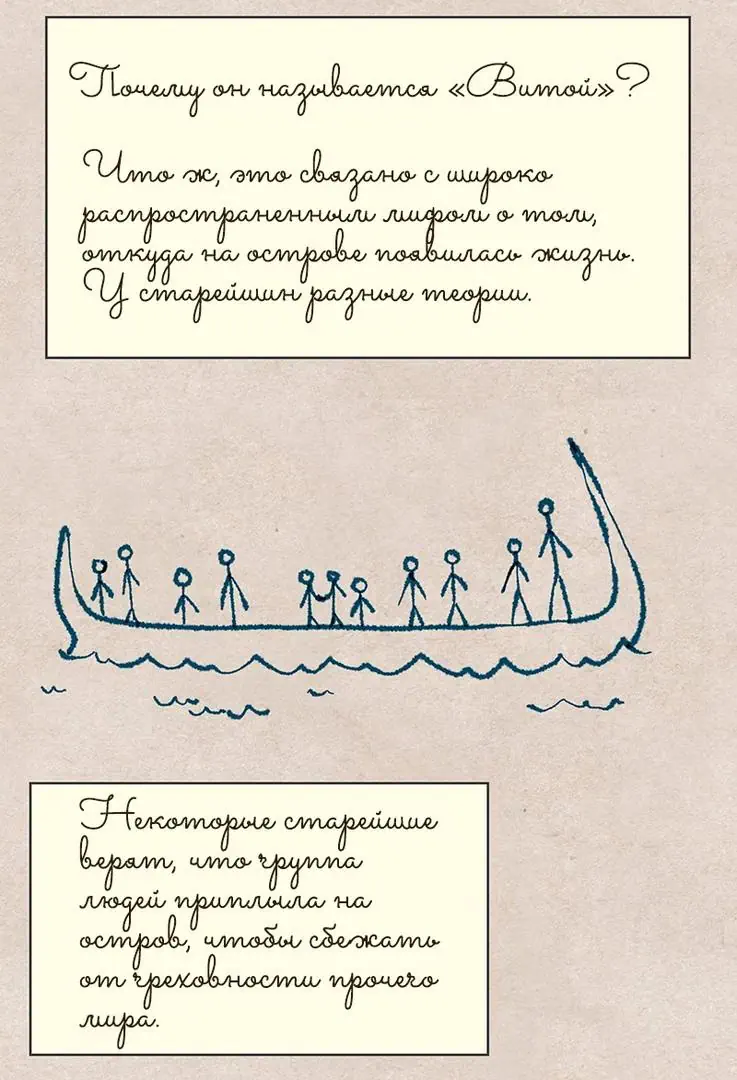 Почему он называется «Витой»?
Что ж, это связано с широко
распространенным мифом о том,
откуда на острове появилась жизнь.
У старейшин разные теории.
Некоторые старейшие
верят, что группа
людей приплыла на
остров, чтобы сбежать
от греховности прочего
мира.